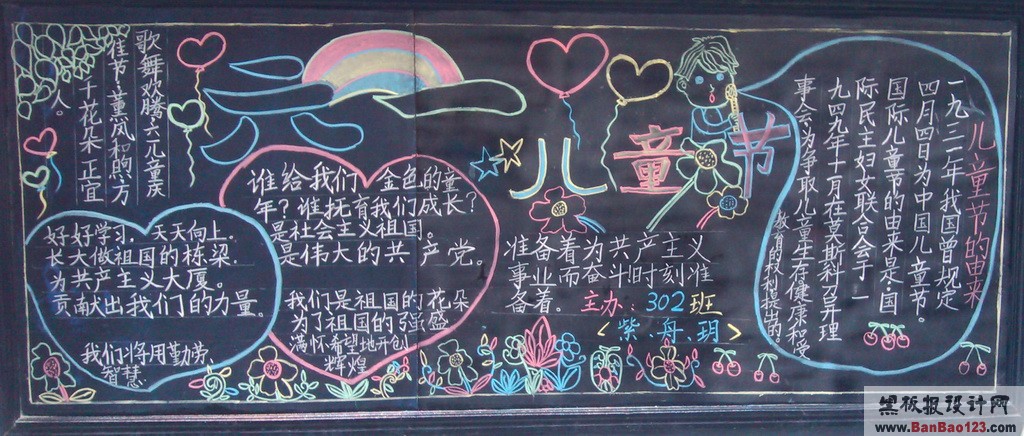 歌舞欢腾六一儿童庆
佳节,童风和煦,方
十花朵正宜
人。
谁给我们 金色的童
年?谁抚育我们成长?
是社会主义祖国。
是伟大的共产党。
我们是祖国的花朵
为了祖国的强盛
满怀希望地开创
辉煌
好好学习,天天向上,
长大做祖国的栋梁,
为共产主义大厦。
贡献出我们的力量。
我们将用勤劳、
智慧
儿童节
准备着为共产主义
事业而奋斗!时刻准
备着。
主办:302班
<紫、舟、玥>
儿童节的由来
一九三一年我国曾规定
四月四日为中国儿童节。
国际儿童节的由来是:国
际民主妇女联合会于一
九四九年十一月在莫斯科召开理
事会为争取儿童生存健康和受
教育的权利提出的。
黑板报设计网
www.BanBao123.com